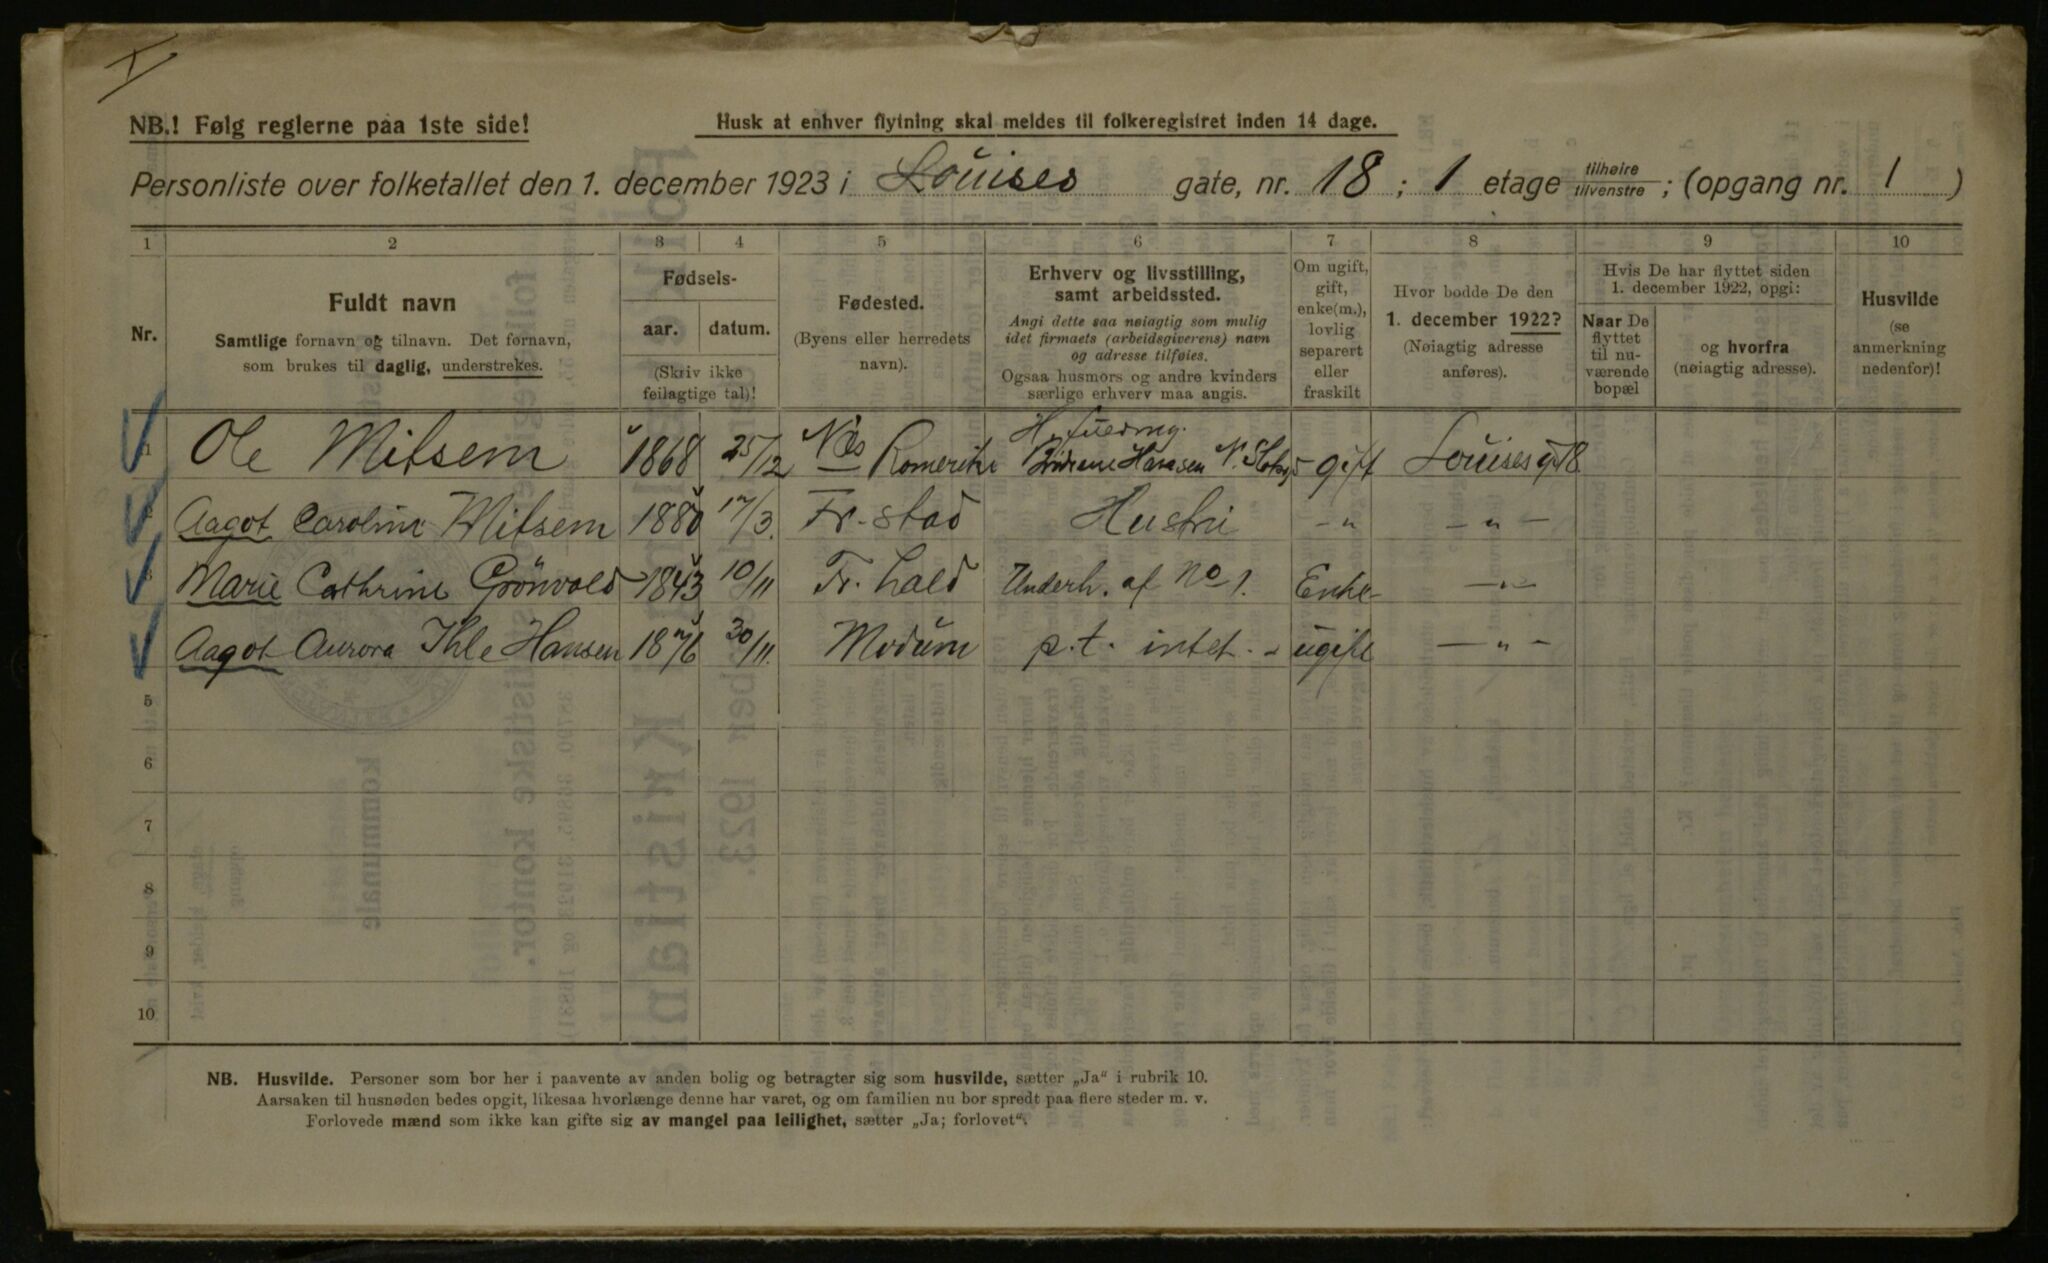 I
NB.! Følg reglerne paa 1ste side!
Husk at enhver flytning skal meldes til folkeregistret inden 14 dage.
Personliste over folketallet den 1. december 1923 i Louises gate, nr. 18 ; 1 etage tilhøire tilvenstre ; (opgang nr. 1 )
1 2 3 4 5 6 7 8 9 10
Nr.
Fuldt navn
Samtlige fornavn og tilnavn. Det fornavn,
som brukes til daglig, understrekes.
Fødsels-
aar. datum.
(Skriv ikke
feilagtige tal)!
Fødested.
(Byens eller herredets
navn).
Erhverv og livsstilling,
samt arbeidssted.
Angi dette saa nøiagtig som mulig
idet firmaets (arbeidsgiverens) navn
og adresse tilføies.
Ogsaa husmors og andre kvinders
særlige erhverv maa angis.
Om ugift,
gift,
enke(m.),
lovlig
separert
eller
fraskilt
Hvor bodde De den
1. december 1922?
(Nøiagtig adresse
anføres).
Hvis De har flyttet siden
1. december 1922, opgi:
Naar De
flyttet
til nu-
værende
bopæl
og hvorfra
(nøiagtig adresse).
Husvilde
(se
anmerkning
nedenfor)!
1 Ole Mitsem 1868 25/12 Næs Romerike Hansen N. gift Louises gt 18
2 Aagot Caroline Mitsem 1880 17/3. Fr.stad Hustru -"- -"-
3 Marie Cathrine Grönvold 1843 10/11 Fr. hald Underh. af No 1. Enke -"-
Aagot Aurora Ihle Hansen 1876 30/11. Modum p.t. intet. - ugift -"-
5
6
7
8
9
10
NB. Husvilde. Personer som bor her i paavente av anden bolig og betragter sig som husvilde, sætter „Ja“ i rubrik 10.
Aarsaken til husnøden bedes opgit, likesaa hvorlænge denne har varet, og om familien nu bor spredt paa flere steder m. v.
Forlovede mænd som ikke kan gifte sig av mangel paa leilighet, sætter „Ja; forlovet“.